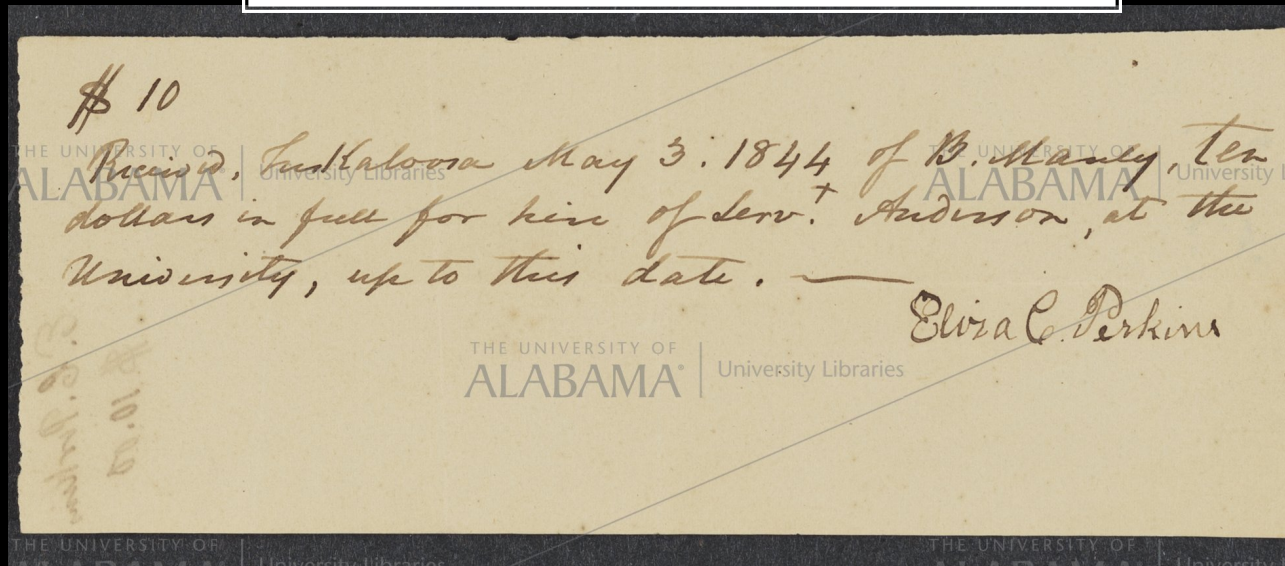 $ 10
Receiv'd, Tuskaloosa May 3. 1844 of B. Manly, ten
dollars in full for hire of Serv.t Anderson, at the
University, up to this date. —
Eliza C. Perkins
THE UNIVERSITY OF
ALABAMA University Libraries
THE UNIVERSITY OF
ALABAMA University Libraries
THE UNIVERSITY OF
ALABAMA® University Libraries
THE UNIVERSITY OF
University Libraries
THE UNIVERSITY OF